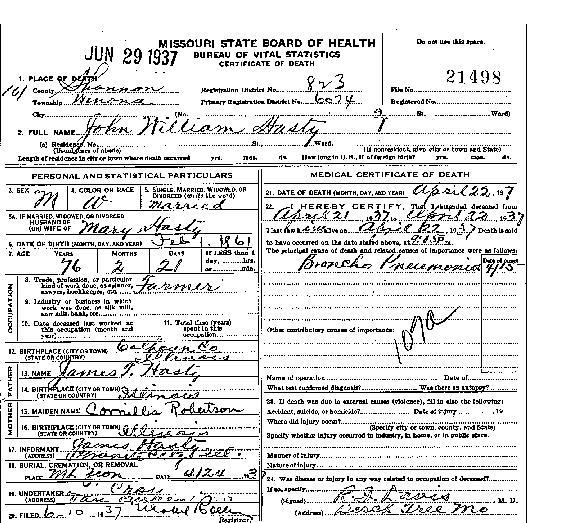 MISSOURI STATE BOARD OF HEALTH
BUREAU OF VITAL STATISTICS
CERTIFICATE OF DEATH
Do not use this space.
JUN 29 1937
1. PLACE OF DEATH
County Shannon
Registration District No. 823
File No. 21498
Township Winona
Primary Registration District No. 6074
Registered No. 9
City (No. St. Ward)
2. FULL NAME John William Hasty
(a) Residence, No. St. Ward.
(Usual place of abode) (If nonresident, give city or town and State)
Length of residence in city or town where death occurred yrs. mos. ds. How long in U. S., if of foreign birth? yrs. mos. ds.
PERSONAL AND STATISTICAL PARTICULARS
3. SEX M
4. COLOR OR RACE W
5. SINGLE, MARRIED, WIDOWED, OR DIVORCED (write the word) Married
5A. IF MARRIED, WIDOWED, OR DIVORCED
HUSBAND OF (OR) WIFE OF Mary Hasty
6. DATE OF BIRTH (MONTH, DAY, AND YEAR) Feb 1 1861
7. AGE YEARS 76 MONTHS 2 DAYS 21 If LESS than 1 day, hrs. or min.
OCCUPATION
8. Trade, profession, or particular kind of work done, as spinner, sawyer, bookkeeper, etc. Farmer
9. Industry or business in which work was done, as silk mill, saw mill, bank, etc.
10. Date deceased last worked at this occupation (month and year)
11. Total time (years) spent in this occupation
12. BIRTHPLACE (CITY OR TOWN) Calhoun Co
(STATE OR COUNTRY) Illinois
FATHER
13. NAME James T. Hasty
14. BIRTHPLACE (CITY OR TOWN)
(STATE OR COUNTRY) Illinois
MOTHER
15. MAIDEN NAME Cornillia Robertson
16. BIRTHPLACE (CITY OR TOWN)
(STATE OR COUNTRY) Illinois
17. INFORMANT James Hasty
(ADDRESS)
18. BURIAL, CREMATION, OR REMOVAL
PLACE Mt Zion DATE 4/24 37
19. UNDERTAKER
(ADDRESS)
20. FILED 6-10 1937
Registrar
MEDICAL CERTIFICATE OF DEATH
21. DATE OF DEATH (MONTH, DAY, AND YEAR) April 22, 1937
22. I HEREBY CERTIFY, That I attended deceased from
April 21 1937, to April 22 1937
I last saw alive on April 22 1937 Death is said
to have occurred on the date stated above, at
The principal cause of death and related causes of importance were as follows:
Broncho Pneumonia
Date of onset 4/15
107a
Other contributory causes of importance:
Name of operation Date of
What test confirmed diagnosis? Was there an autopsy?
23. If death was due to external causes (violence), fill in also the following:
Accident, suicide, or homicide? Date of injury 19
Where did injury occur?
(Specify city or town, county, and State)
Specify whether injury occurred in industry, in home, or in public place.
Manner of injury
Nature of injury
24. Was disease or injury in any way related to occupation of deceased?
If so, specify
(Signed) Davis M. D.
(Address) Birch Tree Mo